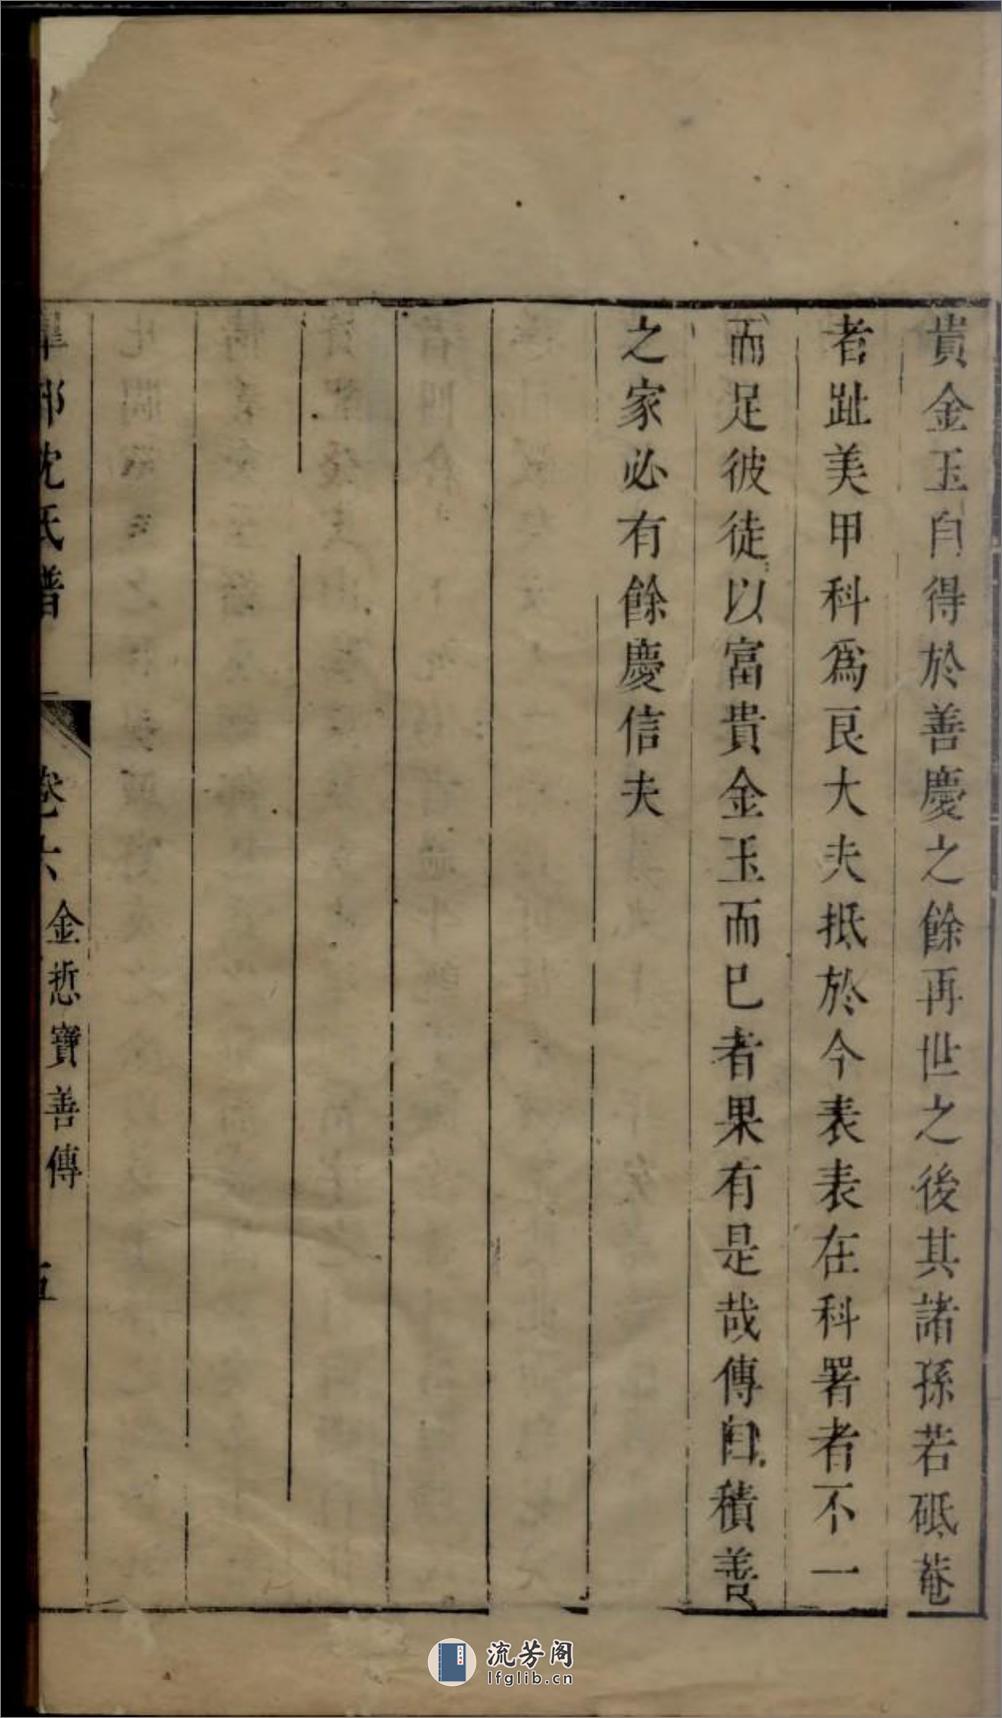 貴金玉自得於善慶之餘再世之後其諸孫若砥菴
者趾美甲科爲良大夫抵於今表表在科署者不一
而足彼徒以富貴金玉而巳者果有是哉傳曰積善
之家必有餘慶信夫
沈氏譜
卷六
金悊寶善傳
五
流芳阁
lfglib.cn